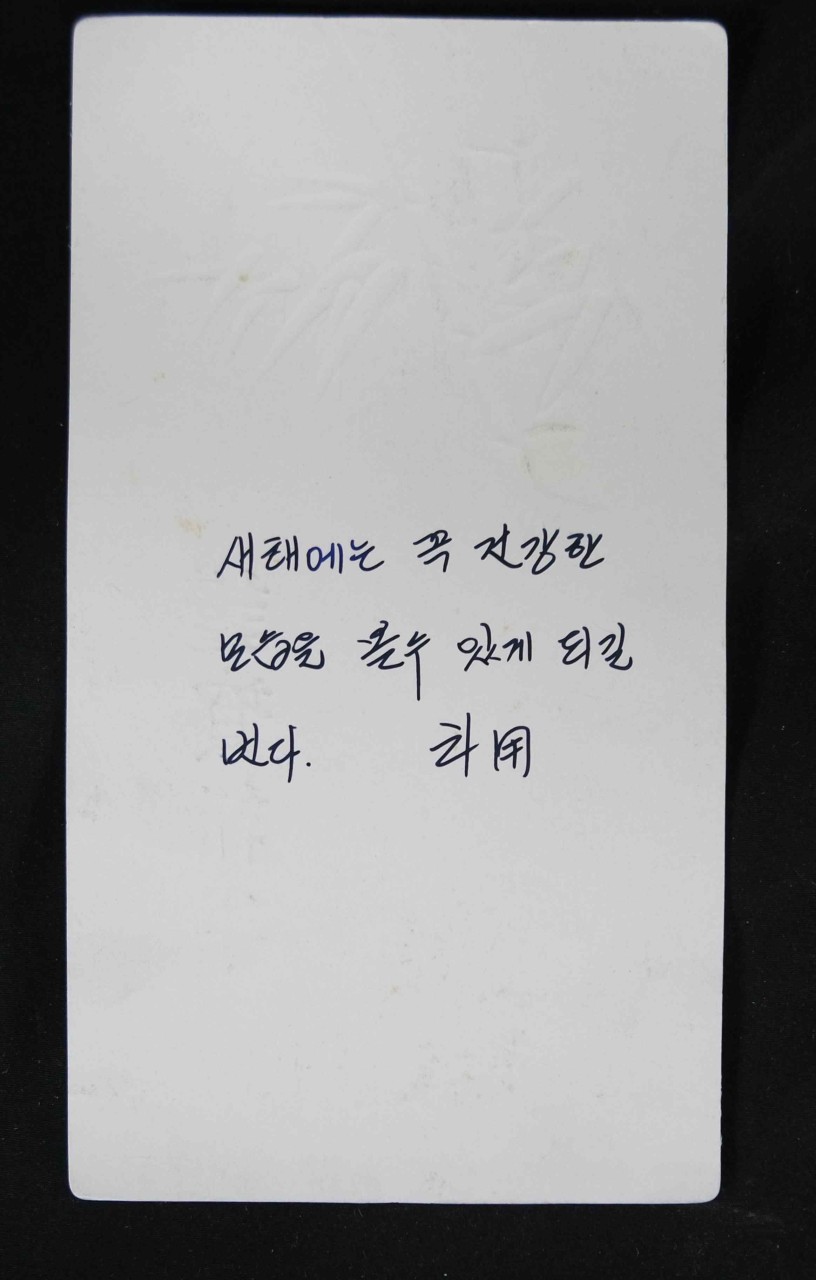 새해에는 꼭 건강한
모습을 볼수 있게 되길
빈다.